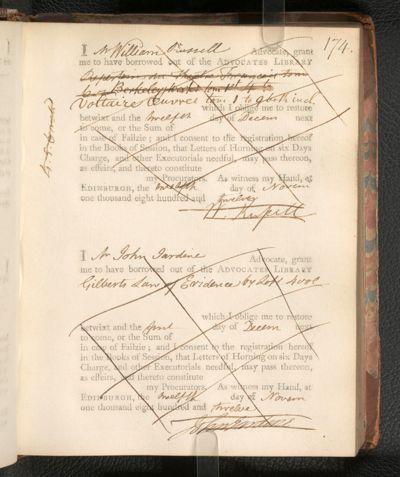 174.
I Mr William Russell Advocate, grant
me to have borrowed out of the ADVOCATES LIBRARY
Repertoire du Theatre Francais tom
Berkeley's
Voltaire Œuvres tom 1 to 9 both incl
which I oblige me to restore
betwixt and the twelfth day of Decem next
to come, or the Sum of
in case of Failzie; and I consent to the registration hereof
in the Books of Session, that Letters of Horning on six Days
Charge, and other Executorials needful, may pass thereon,
as effeirs, and thereto constitute
my Procurators. As witness my Hand, at
EDINBURGH, the twelfth day of Novem
one thousand eight hundred and twelve
W. Russell
I Mr John Jardine Advocate, grant
me to have borrowed out of the ADVOCATES LIBRARY
Gilberts Law of Evidence by Loft 4 vols
which I oblige me to restore
betwixt and the first day of Decem next
to come, or the Sum of
in case of Failzie; and I consent to the registration hereof
in the Books of Session, that Letters of Horning on six Days
Charge, and other Executorials needful, may pass thereon,
as effeirs, and thereto constitute
my Procurators. As witness my Hand, at
EDINBURGH, the twelfth day of Novem
one thousand eight hundred and twelve
John Jardine